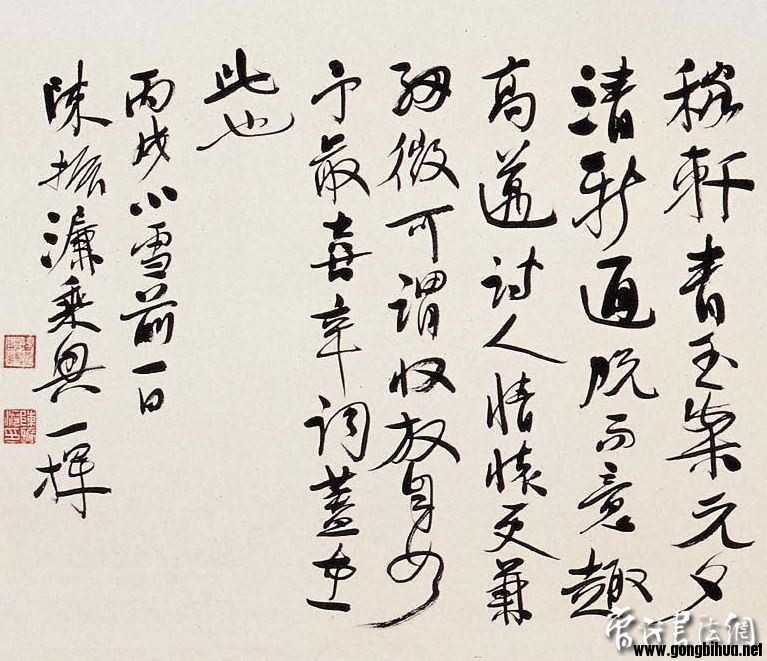 稼軒青玉案元夕
清新通脫而意趣
高邁詩人情懷更兼
細微可謂收放自如
予最喜辛詞蓋在
此也
丙戌小雪前一日
陳振濂乘興一揮
書法網
www.gongbihua.net